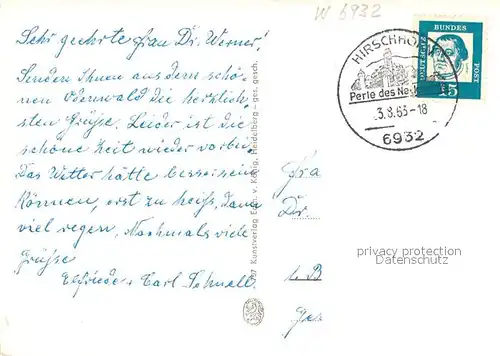 W 6932
Sehr geehrte Frau Dr. Werner!
Senden Ihnen aus dem schö-
nen Odenwald die herzlich-
sten Grüße. Leider ist die
schöne Zeit wieder vorbei.
Das Wetter hätte besser sein
können, erst zu heiß, dann
viel regen, Nochmals viele
Grüße
Elfriede + Carl Schnell.
Kunstverlag Edm. v. König, Heidelberg - ges. gesch.
HIRSCHHORN
Perle des Ne
3.8.63-18
6932
DEUTSCHE
BUNDES
POST
15
Fra
Dr.
privacy protection
Datenschutz